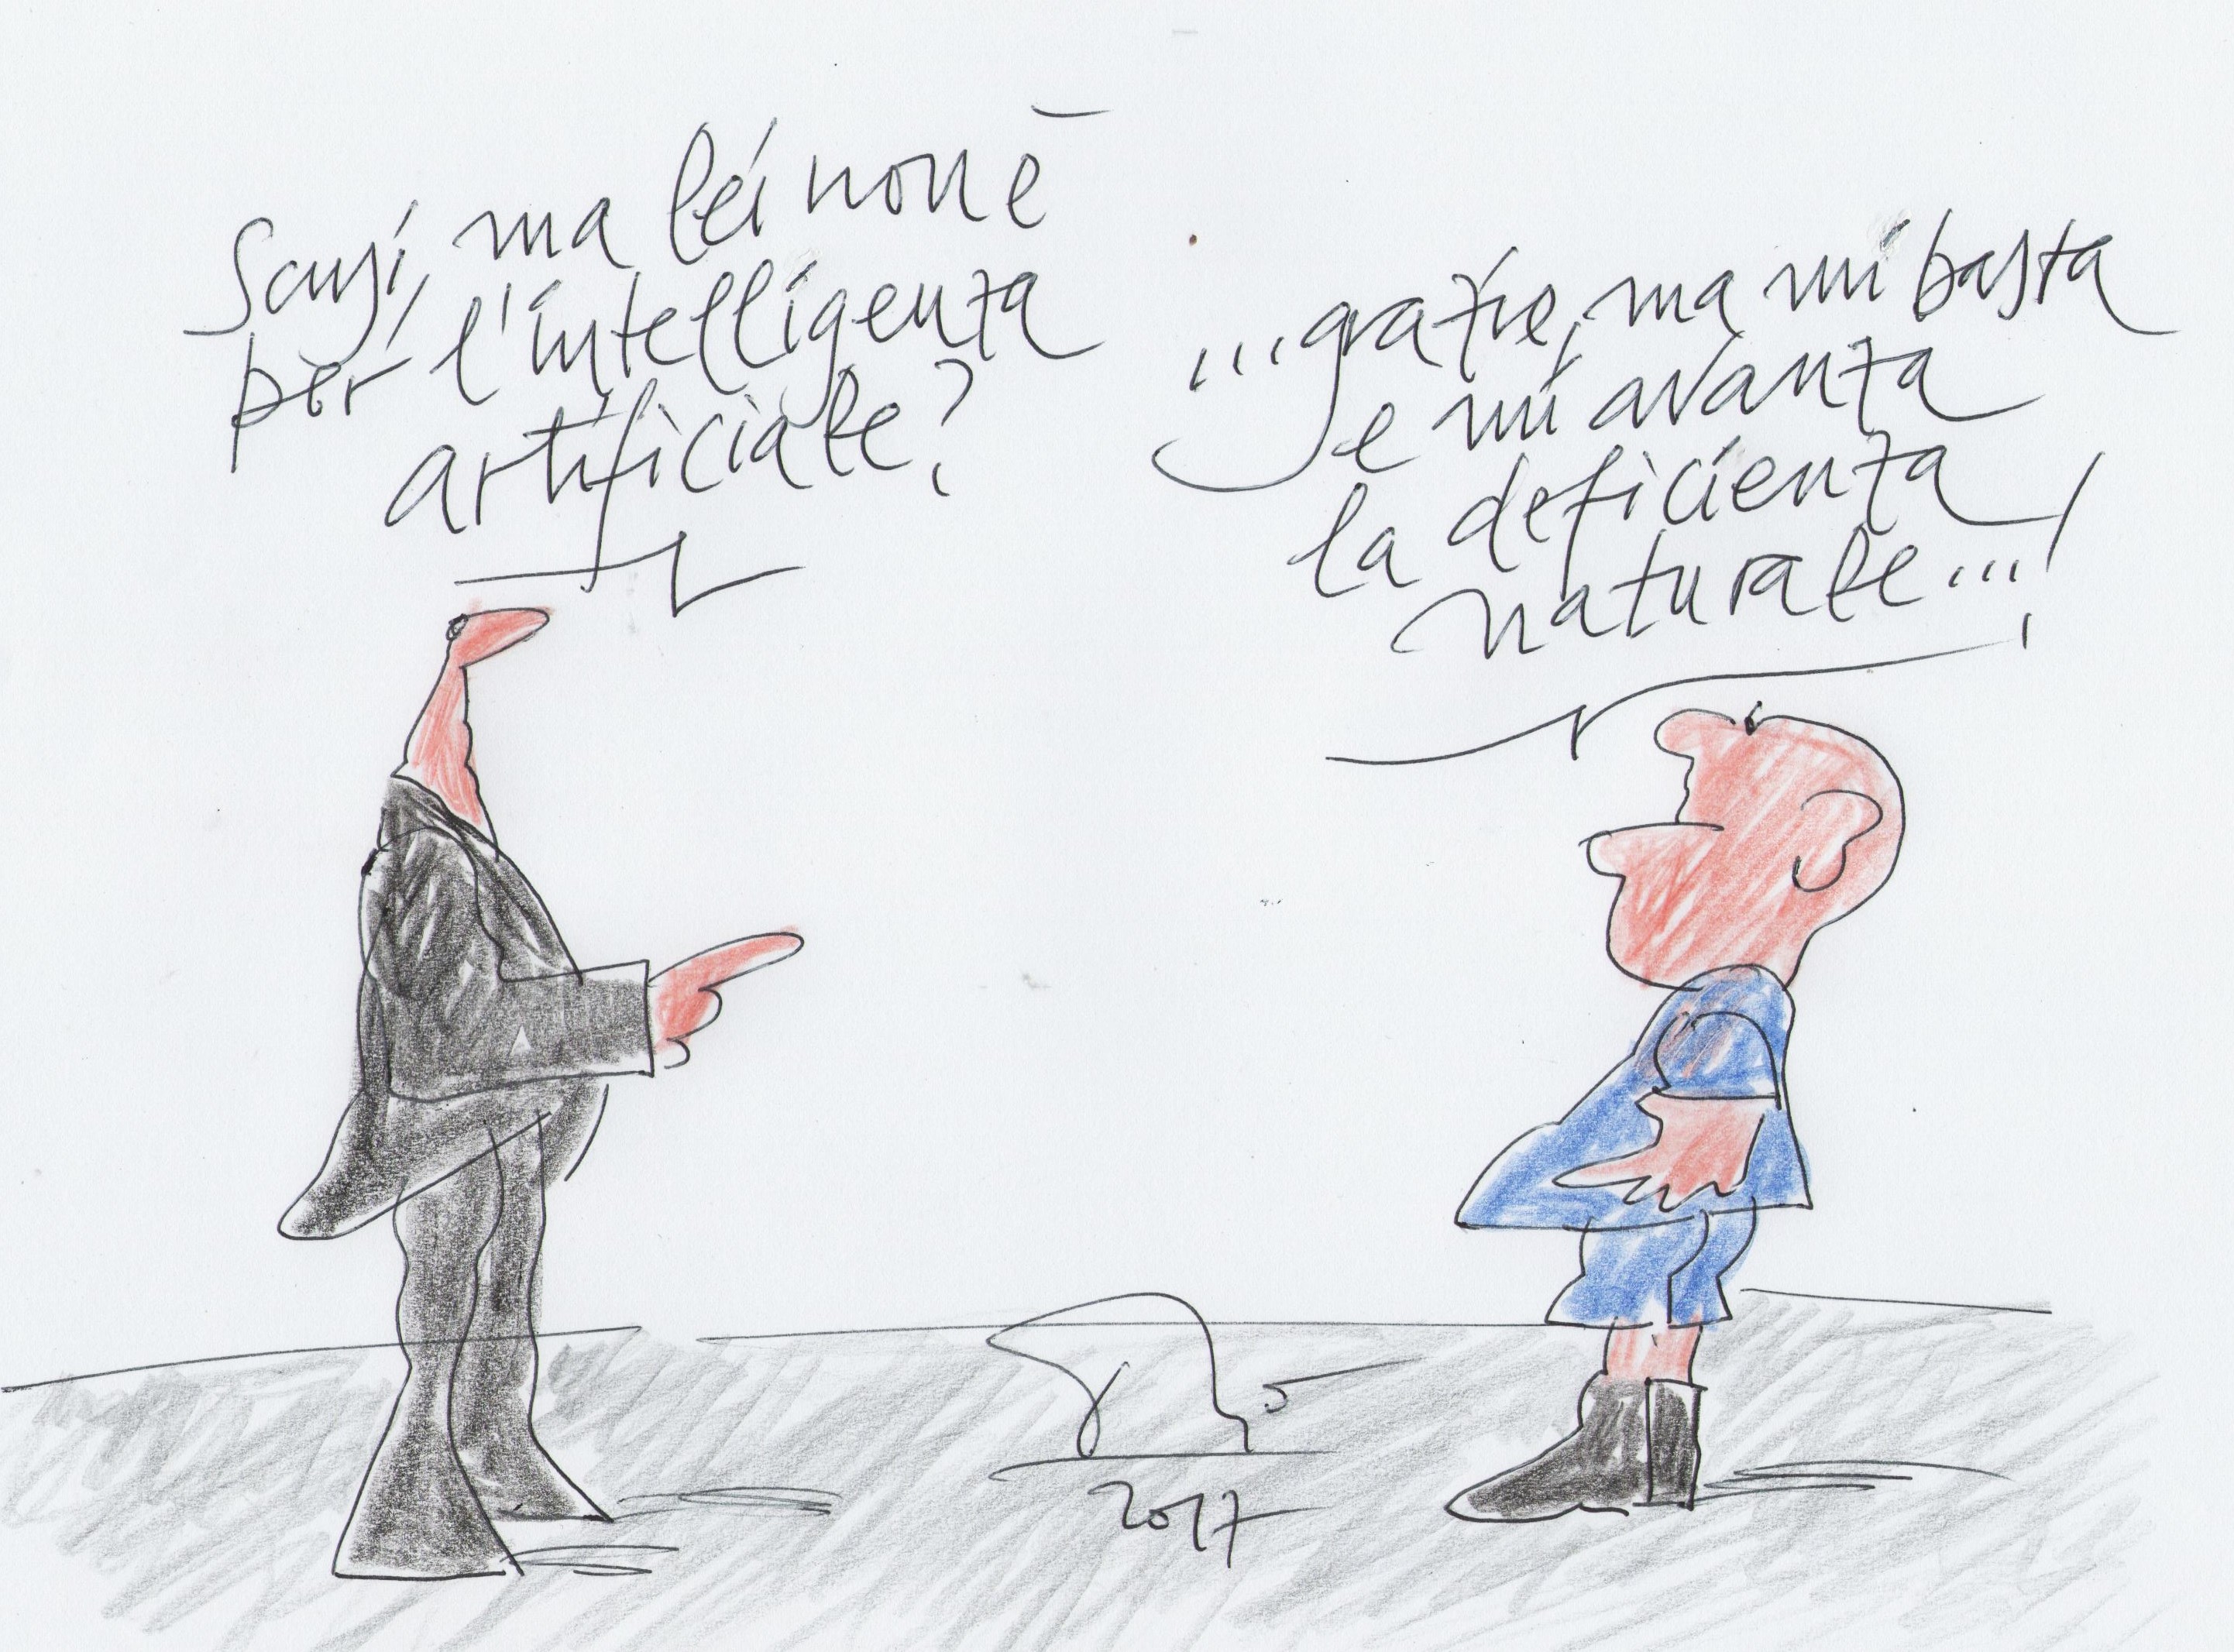 Scusi, ma lei non è
per l'intelligenza
artificiale?
...grazie, ma mi basta
e mi avanza
la deficienza
naturale...!
2017